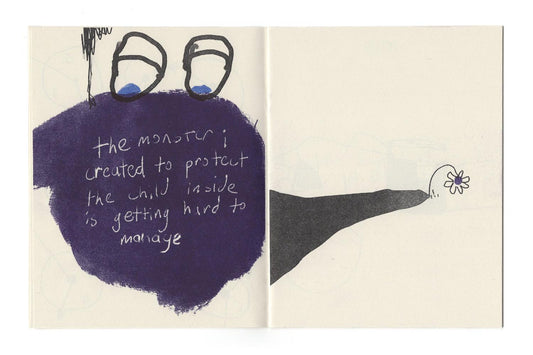 the monster i
created to protect
the child inside
is getting hard to
manage